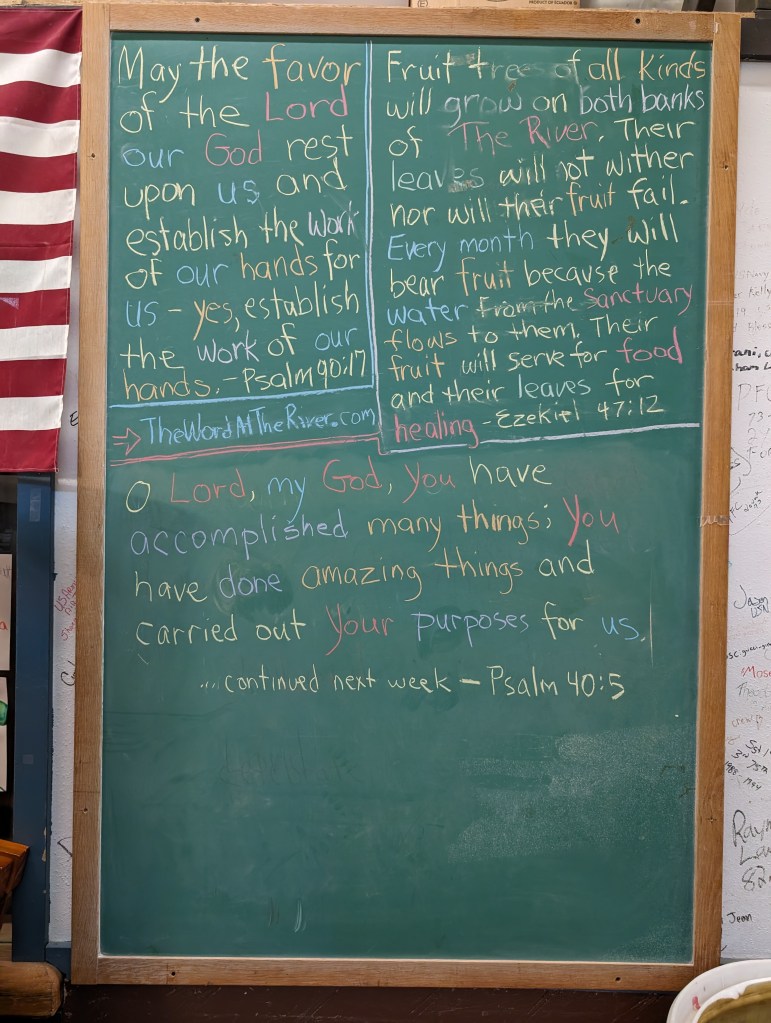 PRODUCT OF ECUADOR
May the favor
of the Lord
our God rest
upon us and
establish the work
of our hands for
us - yes, establish
the work of our
hands. - Psalm 90:17
Fruit trees of all kinds
will grow on both banks
of The River. Their
leaves will not wither
nor will their fruit fail.
Every month they will
bear fruit because the
water from the sanctuary
flows to them. Their
fruit will serve for food
and their leaves for
healing - Ezekiel 47:12
⇒ TheWordAtTheRiver.com
O Lord, my God, You have
accomplished many things; You
have done amazing things and
carried out Your purposes for us.
... continued next week - Psalm 40:5
Jason
Jean